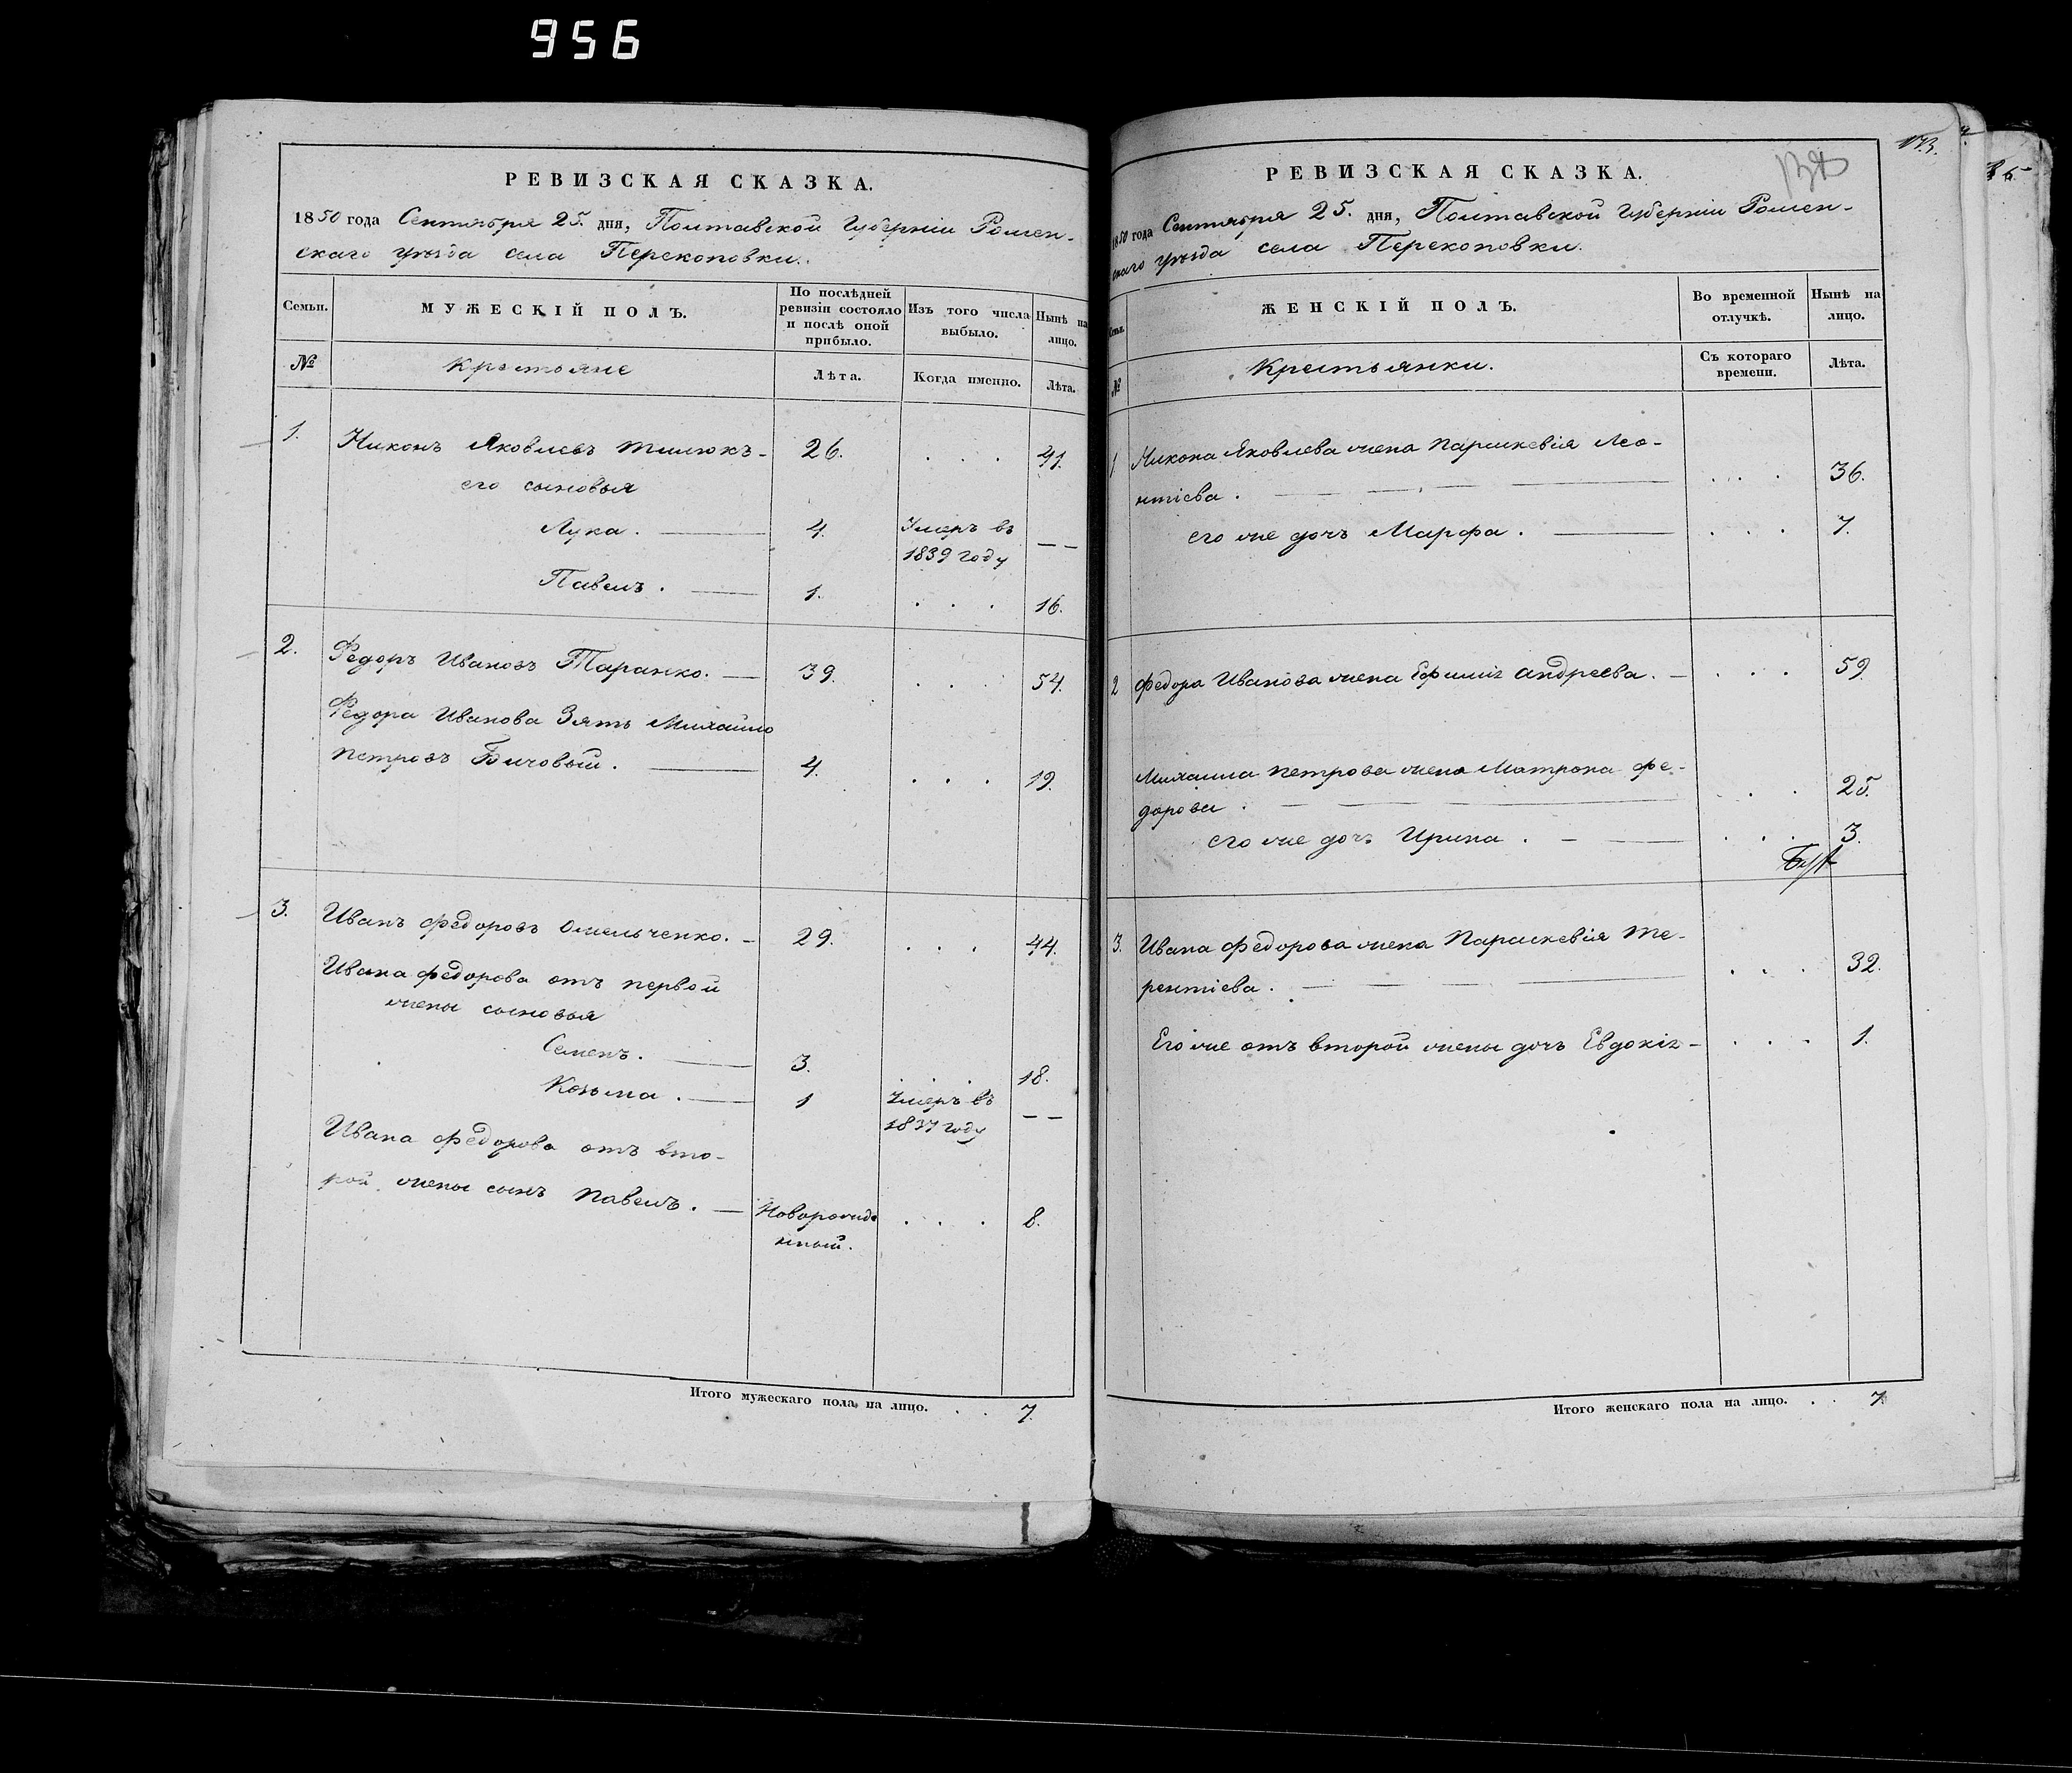 956
РЕВИЗСКАЯ СКАЗКА.
1850 года Сентября 25. дня, Полтавской Губерніи Ромен-
скаго уѣзда села Перекоповки.
Семьи.
МУЖЕСКІЙ ПОЛЪ.
По послѣдней
ревизіи состояло
и послѣ оной
прибыло.
Изъ того числа
выбыло.
Нынѣ на
лицо.
№
Крестьяне
Лѣта.
Когда именно.
Лѣта.
1. Никонъ Яковлевъ 26. . . . 41.
его сыновья
Лука. 4. Умеръ въ — —
1839 году
Павелъ. 1. . . . 16.
2. Федоръ Ивановъ Таранко. — 39. . . . 54.
Федора Иванова Зять Михайло
Петровъ Бичовый. 4. . . . 19.
3. Иванъ Федоровъ Омельченко. — 29. . . . 44.
Ивана Федорова отъ первой
жены сыновья
Семенъ. 3. . . . 18.
Козьма. 1 Умеръ въ — —
1837 году
Ивана Федорова отъ вто-
рой жены сынъ Павелъ. — Новорожде . . . 8.
нный.
Итого мужескаго пола на лицо. . . 7.
173.
РЕВИЗСКАЯ СКАЗКА.
1850 года Сентября 25. дня, Полтавской Губерніи Ромен-
скаго уѣзда села Перекоповки.
Семьи.
ЖЕНСКІЙ ПОЛЪ.
Во временной
отлучкѣ.
Нынѣ на
лицо.
№
Крестьянки.
Съ котораго
времени.
Лѣта.
1 Никона Яковлева жена Параскевія Лео-
нтіева. . . . 36.
его же дочь Марфа. . . . 7.
2 Федора Иванова жена Ефимія Андреева. — . . . 59.
Михаила Петрова жена Матрона Фе-
дорова. . . . 25.
его же дочь Ирина. . . . 3.
3. Ивана Федорова жена Параскевія Те-
рентіева. . . . 32.
Его же отъ второй жены дочь Евдокія — . . . 1.
Итого женскаго пола на лицо. . . 7.